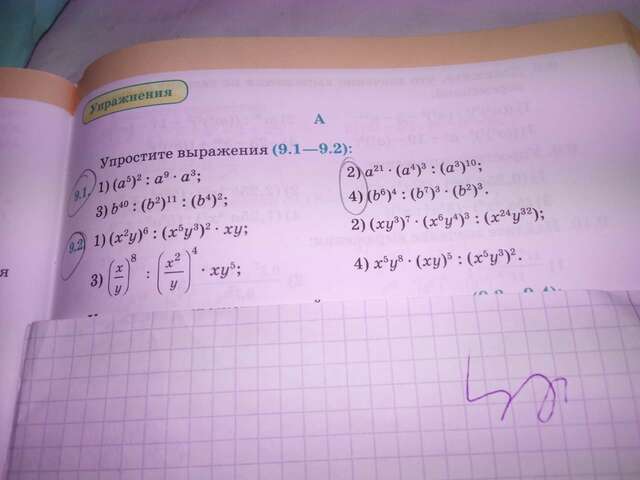 Упражнения
А
Упростите выражения (9.1—9.2):
9.1. 1) (a⁵)² : a⁹ · a³; 2) a²¹ · (a⁴)³ : (a³)¹⁰;
3) b⁴⁰ : (b²)¹¹ : (b⁴)²; 4) (b⁶)⁴ : (b⁷)³ · (b²)³.
9.2 1) (x²y)⁶ : (x⁵y³)² · xy; 2) (xy³)⁷ · (x⁶y⁴)³ : (x²⁴y³²);
3) (x/y)⁸ : (x²/y)⁴ · xy⁵; 4) x⁵y⁸ · (xy)⁵ : (x⁵y³)².